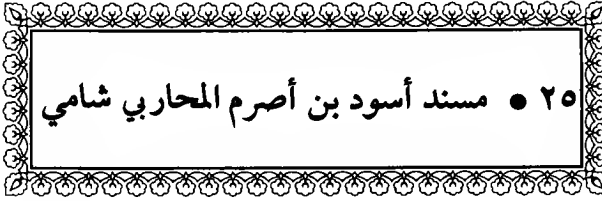 ٢٥ • مسند أسود بن أصرم المحاربي شامي